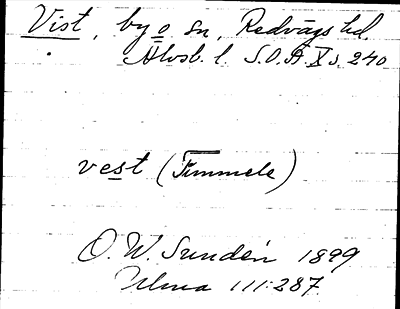 Vist, by o sn, Redvägs hd.
Älvsb. l. S.O.Ä X s. 240
vest (Timmele)
O. W. Sundén 1899
Ulma 111:287.